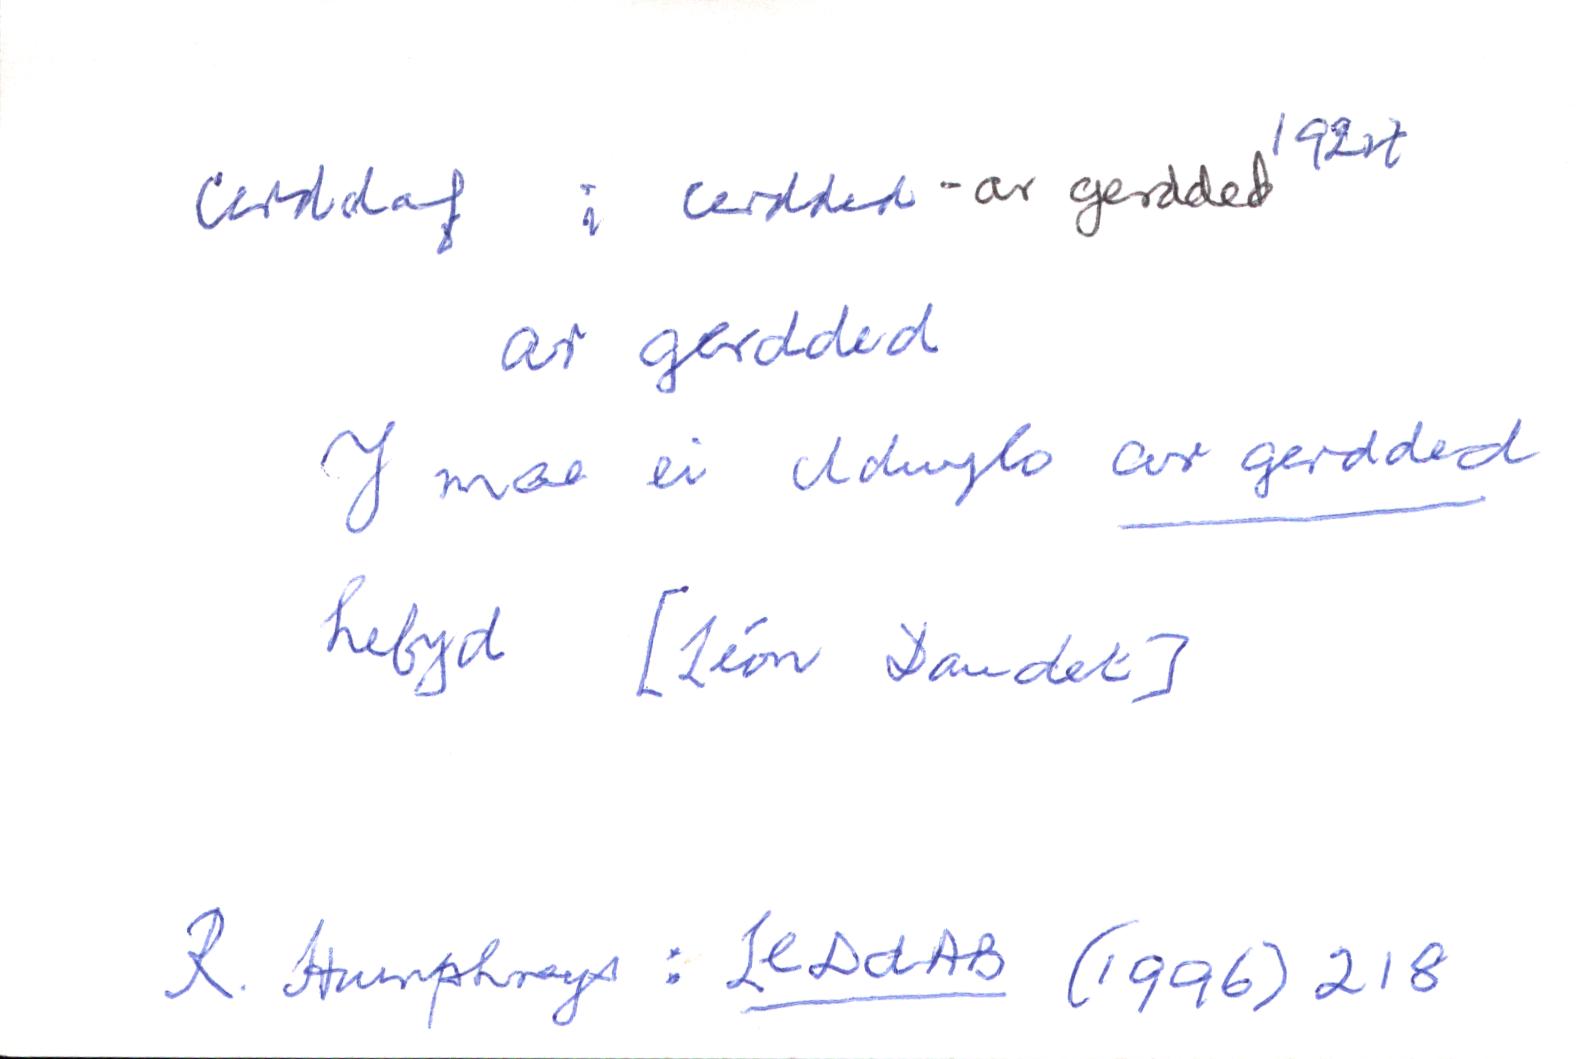 cerddaf : cerdded - ar gerdded 192it
ar gerdded
Y mae ei ddwylo ar gerdded
hefyd [Léon Daudet]
R. Humphreys : LlDdAB (1996) 218